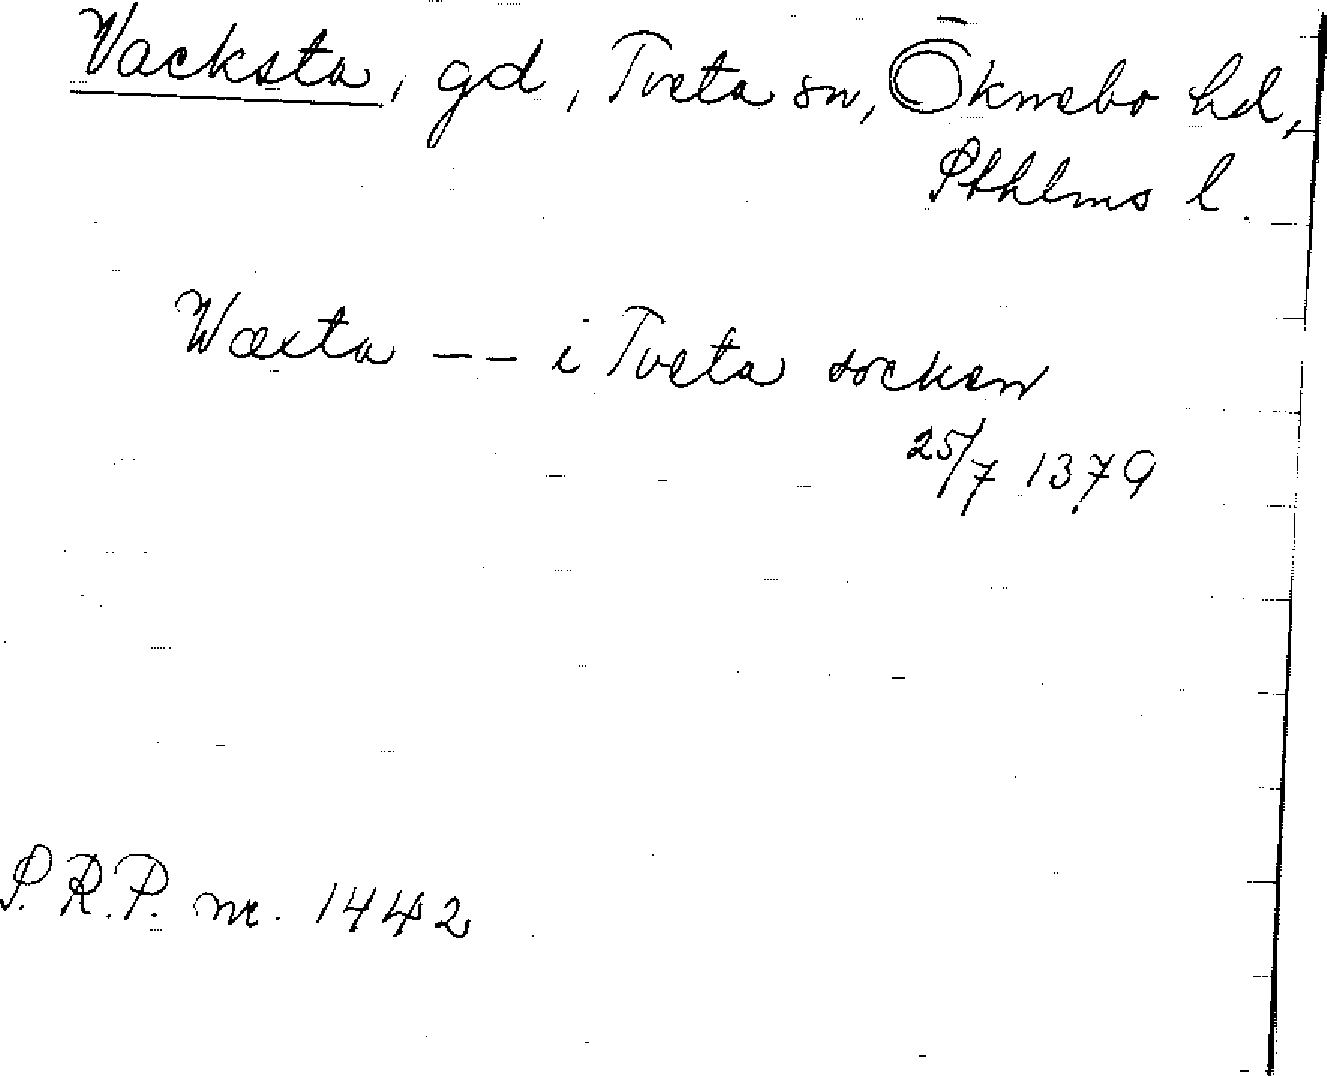 Vacksta, gd, Tveta sn, Öknebo hd,
Sthlms l.
Wæxta -- i Tveta socken
25/7 1379
S.R.P. nr. 1442